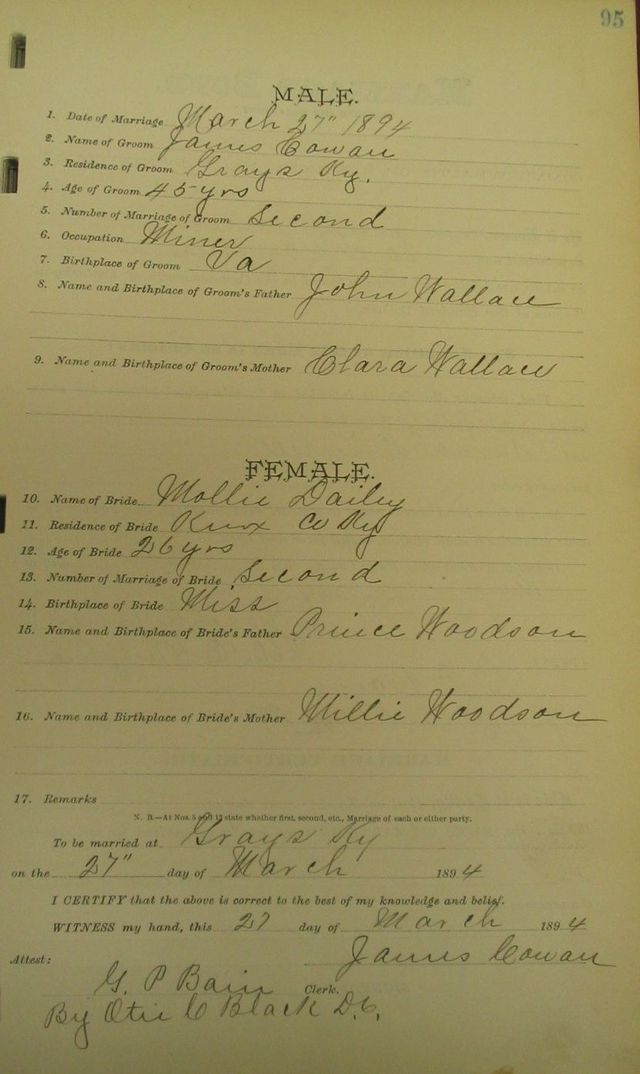 95
MALE.
1. Date of Marriage March 27" 1894
2. Name of Groom James Cowan
3. Residence of Groom Grays Ky.
4. Age of Groom 45 yrs
5. Number of Marriage of Groom Second
6. Occupation Miner
7. Birthplace of Groom Va
8. Name and Birthplace of Groom's Father John Wallace
9. Name and Birthplace of Groom's Mother Clara Wallace
FEMALE.
10. Name of Bride Mollie Dailey
11. Residence of Bride Knox Co Ky
12. Age of Bride 26 yrs
13. Number of Marriage of Bride Second
14. Birthplace of Bride Miss
15. Name and Birthplace of Bride's Father Prince Woodson
16. Name and Birthplace of Bride's Mother Millie Woodson
17. Remarks
N. B.—At Nos. 5 and 13 state whether first, second, etc., Marriage of each or either party.
To be married at Grays Ky
on the 27" day of March 1894
I CERTIFY that the above is correct to the best of my knowledge and belief.
WITNESS my hand, this 27 day of March 1894
James Cowan
Attest:
G. P Bain Clerk.
By Otie C Black D.C.